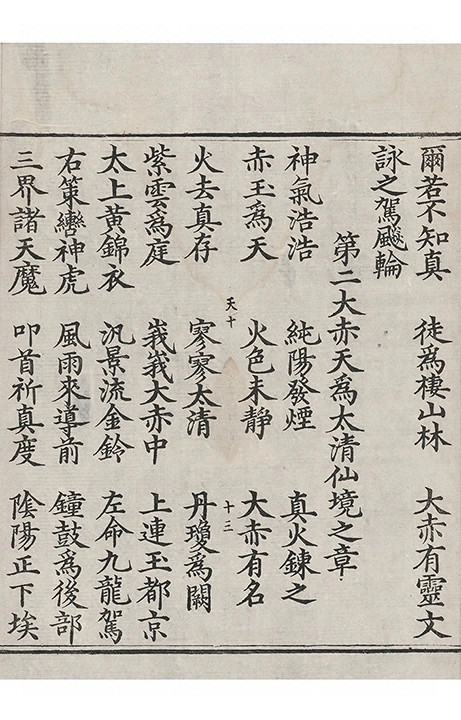 爾若不知真　徒為棲山林　大赤有靈文
詠之駕飈輪
第二大赤天為太清仙境之章
神氣浩浩　純陽發煙　真火鍊之
赤玉為天　火色未靜　大赤有名
天十　十三
火去真存　寥寥太清　丹瓊為闕
紫雲為庭　峩峩大赤中　上連玉都京
太上黃錦衣　汎景流金鈴　左命九龍駕
右策轡神虎　風雨來導前　鐘鼓為後部
三界諸天魔　叩首祈真度　陰陽正下埃